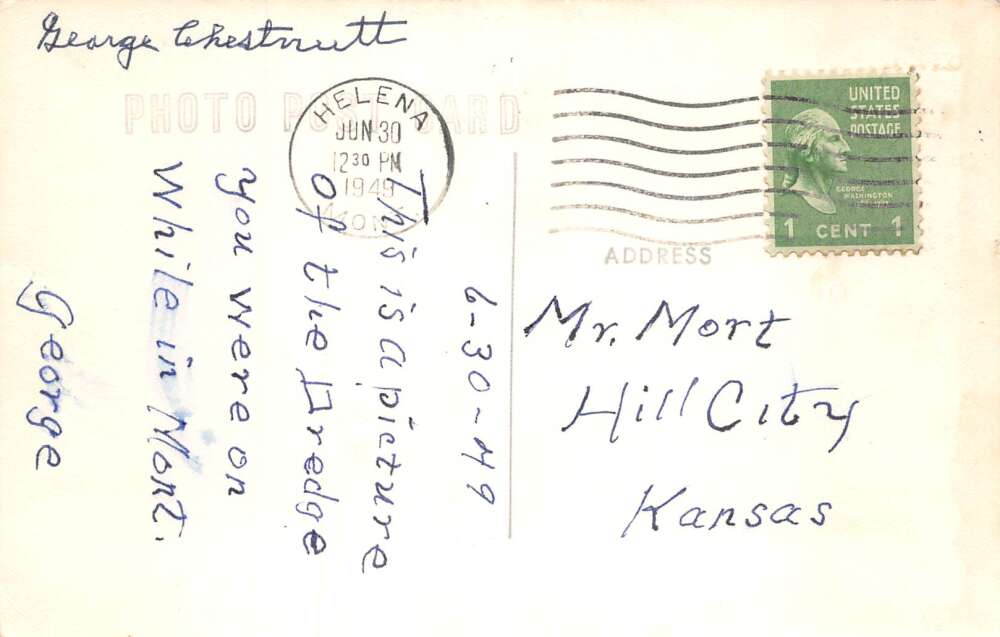 George Chestnutt
PHOTO POST CARD
HELENA
JUN 30
12 30 PM
1949
MONT.
UNITED
STATES
POSTAGE
GEORGE
WASHINGTON
1 CENT 1
ADDRESS
6-30-49
This is a picture
of the Dredge
you were on
While in Mont.
George
Mr. Mort
Hill City
Kansas